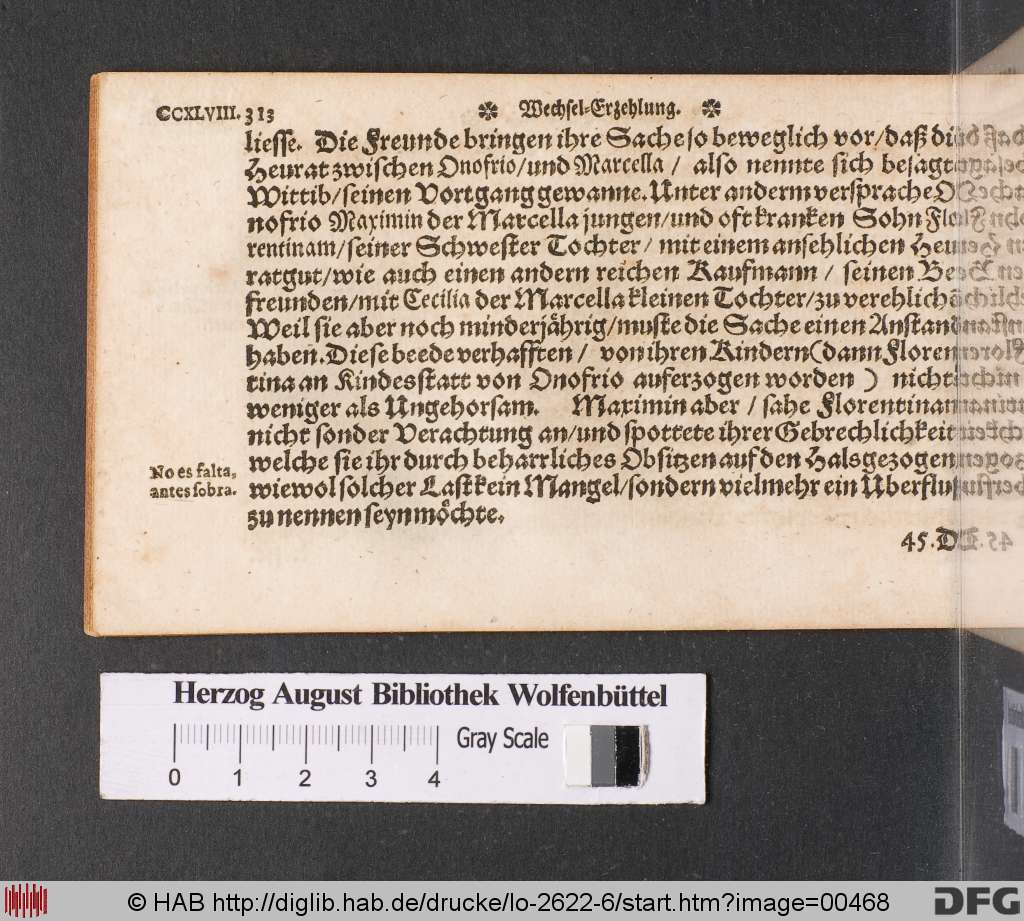 CCXLVIII. 313 Wechsel-Erzehlung.
liesse. Die Freunde bringen ihre Sache so beweglich vor/daß die
Heurat zwischen Onofrio/und Marcella / also nennte sich besagte
Wittib/seinen Vortgang gewanne. Unter anderm versprache O-
nofrio Maximin der Marcella jungen/und oft kranken Sohn Flo-
rentinam/seiner Schwester Tochter/ mit einem ansehlichen Heu-
ratgut/wie auch einen andern reichen Kaufmann / seinen Be-
freunden/mit Cecilia der Marcella kleinen Tochter/zu verehlich
Weil sie aber noch minderjährig/muste die Sache einen Anstand
haben. Diese beede verhafften / von ihren Kindern (dann Floren-
tina an Kindesstatt von Onofrio auferzogen worden ) nichts
weniger als Ungehorsam. Maximin aber / sahe Florentinam
nicht sonder Verachtung an/und spottete ihrer Gebrechlichkeit
No es falta,
antes sobra.
welche sie ihr durch beharrliches Obsitzen auf den Hals gezogen
wiewol solcher Last kein Mangel/sondern vielmehr ein Überfluß
zu nennen seyn möchte.
45. D
Herzog August Bibliothek Wolfenbüttel
0 1 2 3 4 Gray Scale
© HAB http://diglib.hab.de/drucke/lo-2622-6/start.htm?image=00468
DFG